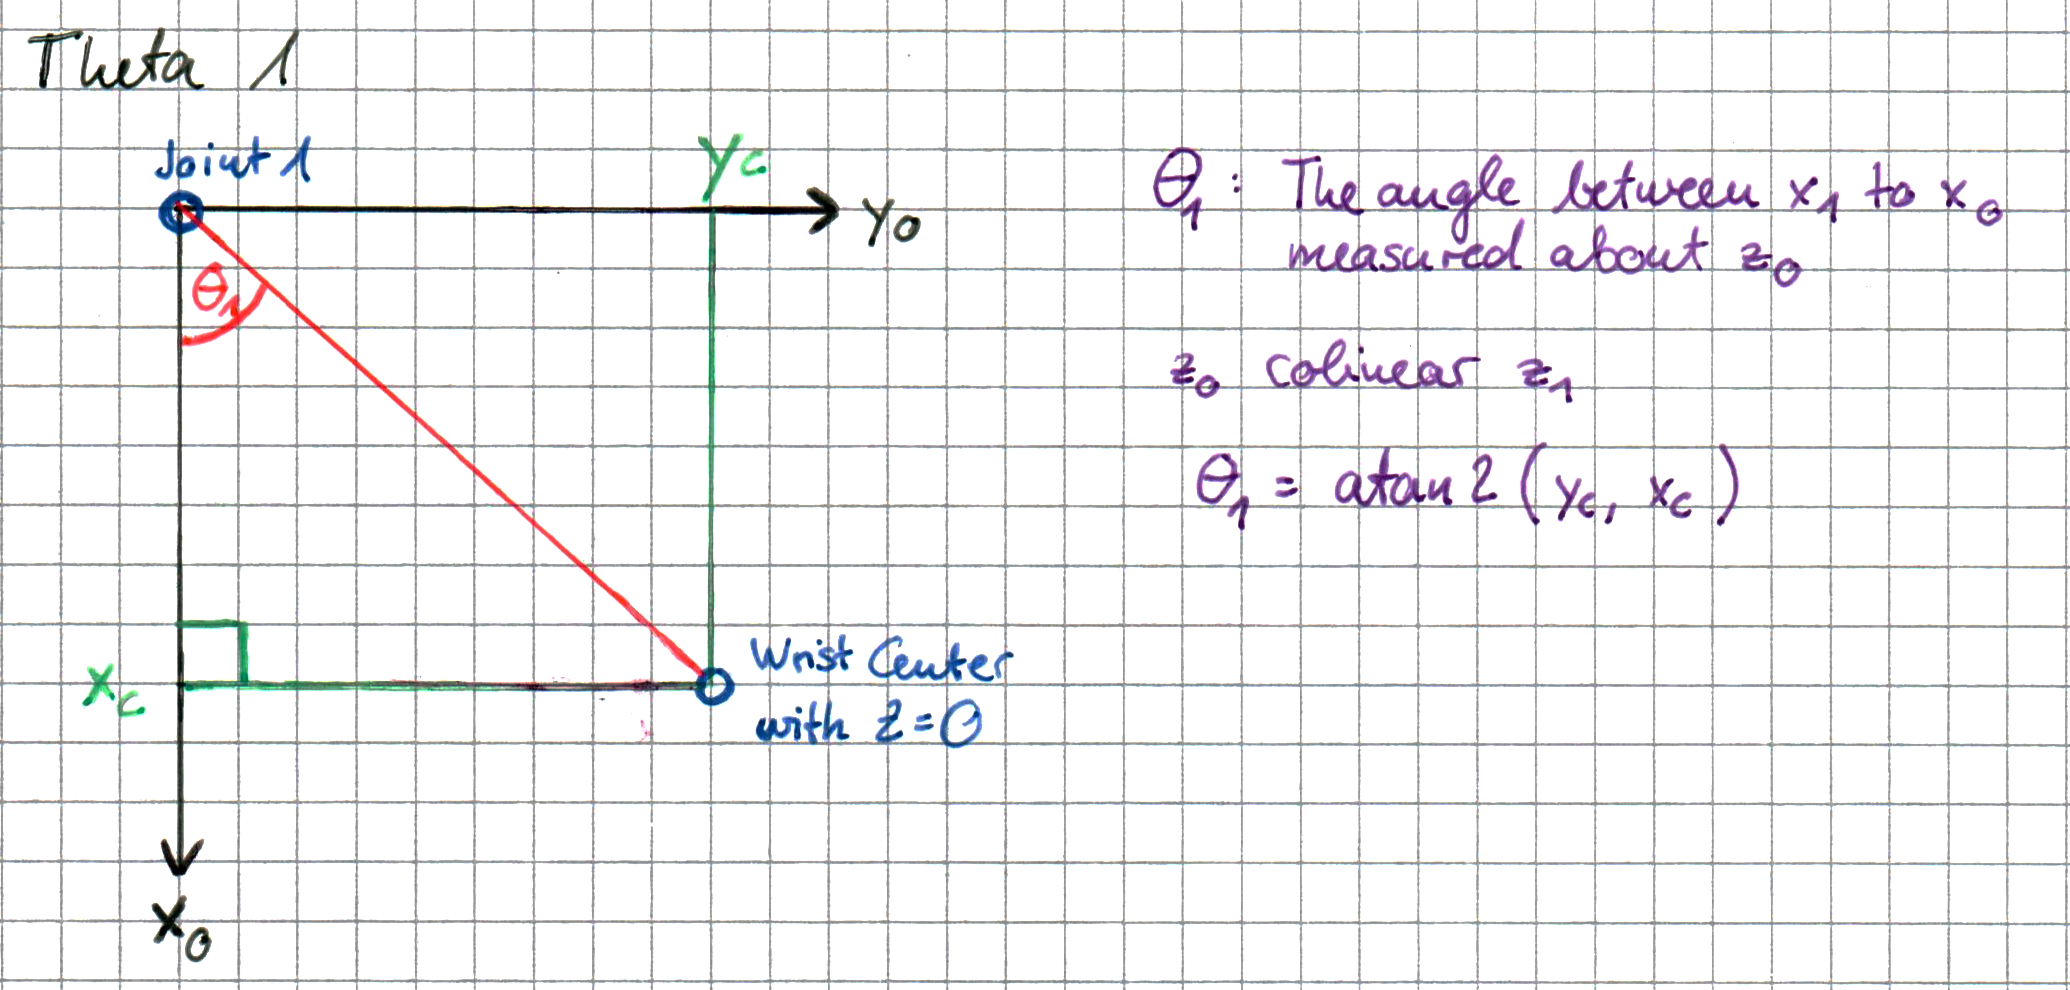 Theta 1
Joint 1
yc
y0
θ1
xc
Wrist Center
with z=0
x0
θ1: The angle between x1 to x0
measured about z0
z0 colinear z1
θ1 = atan2 (yc, xc)